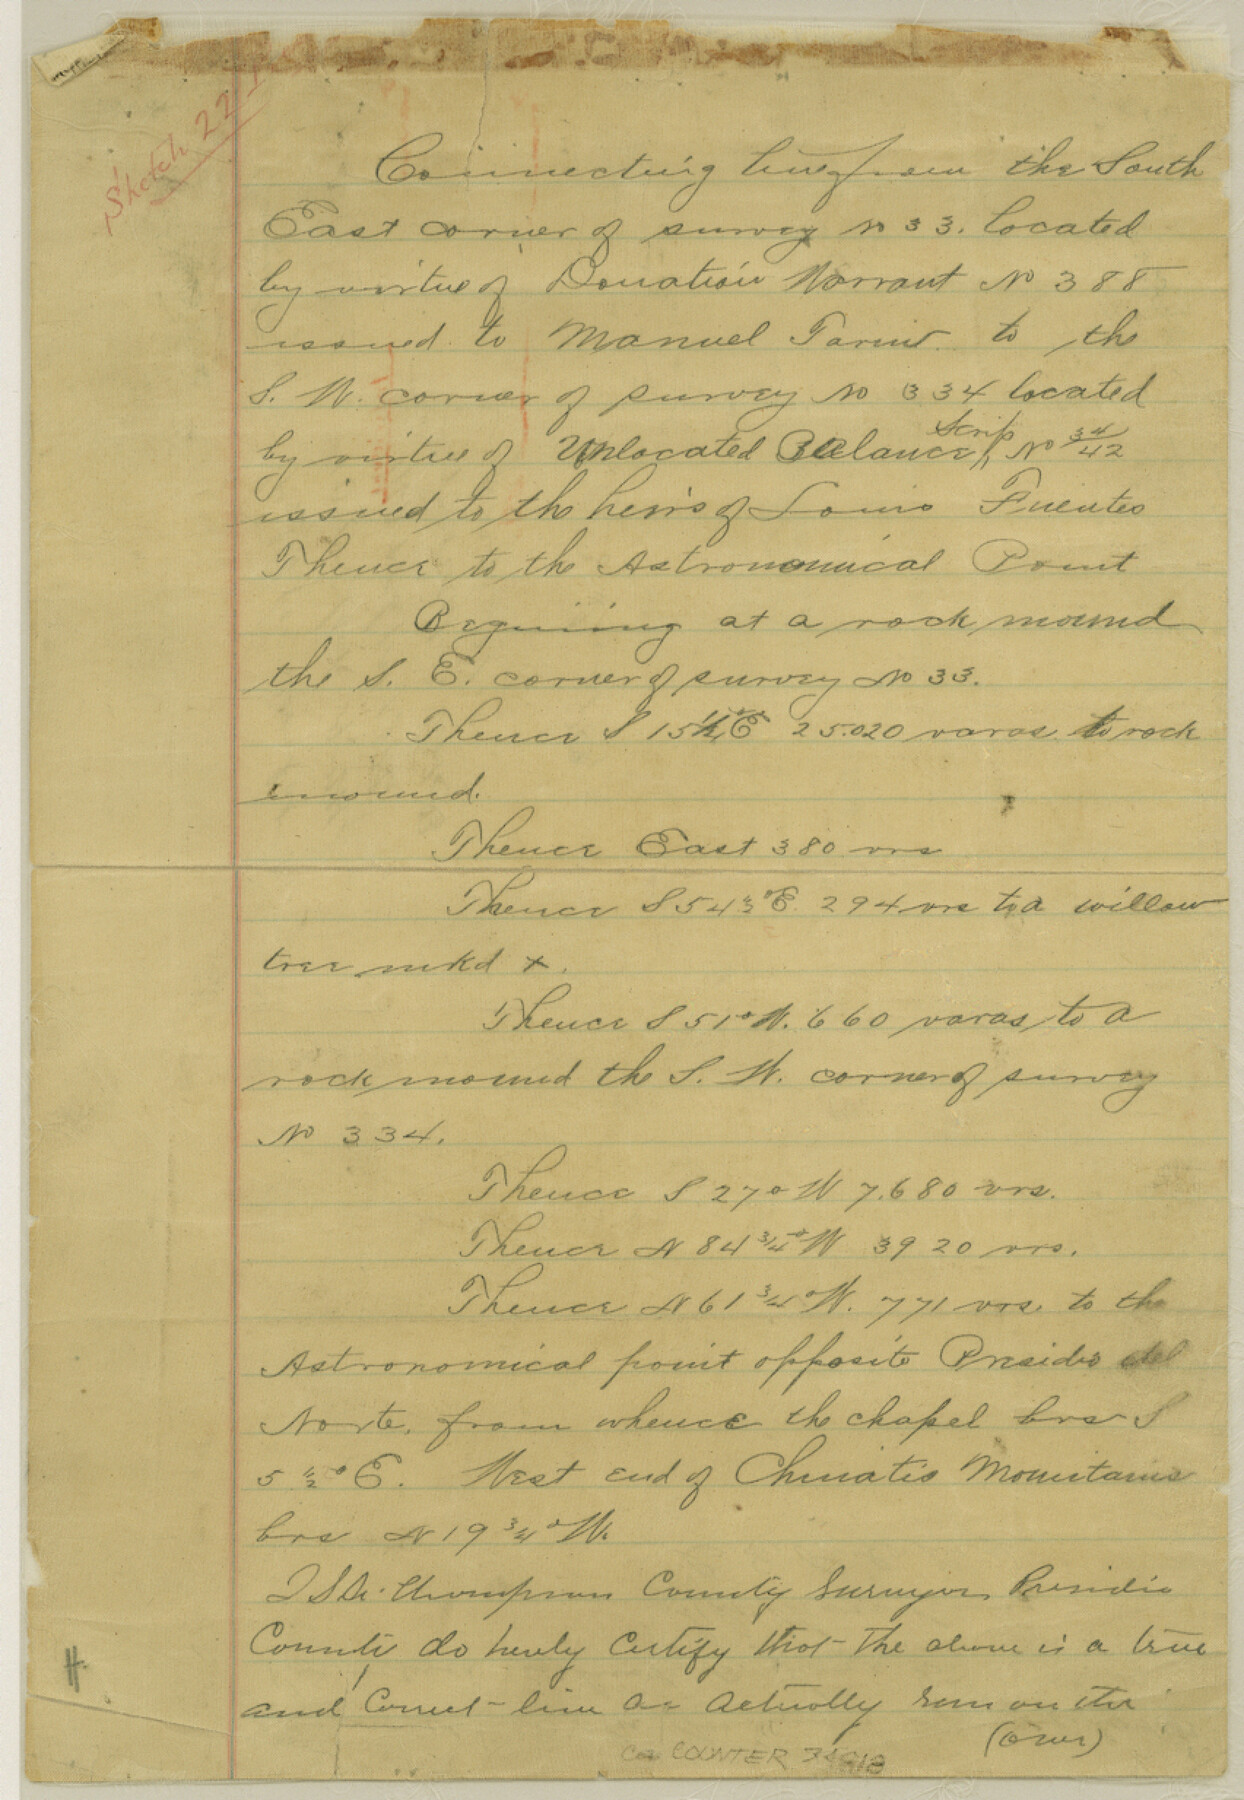 Sketch 22
Connecting line from the South
East corner of survey No 33. located
by virtue of Donation Warrant No 388
issued to Manuel to the
S. W. corner of survey No 334 located
by virtue of Unlocated Balance Scrip No 34/42
issued to the heirs of Louis Fuentes
Thence to the Astronomical Point
Begining at a rock mound
the S. E. corner of survey No 33.
Thence S 15½° E 25.020 varas to rock
mound.
Thence East 380 vrs
Thence S 54½° E. 294 vrs to a willow
tree mkd x.
Thence S 51° W. 660 varas to a
rock mound the S. W. corner of survey
No 334.
Thence S 27° W 7.680 vrs.
Thence N 84¾° W 3920 vrs.
Thence N 61¾° W. 771 vrs. to the
Astronomical point opposite Presidio del
Norte, from whence the chapel brs S
5½° E. West end of Chinatis Mountains
brs N 19¾° W.
I Thompson County Surveyor Presidio
County do hereby Certify that the above is a true
and Correct line as actually run on the
(over)
COUNTER